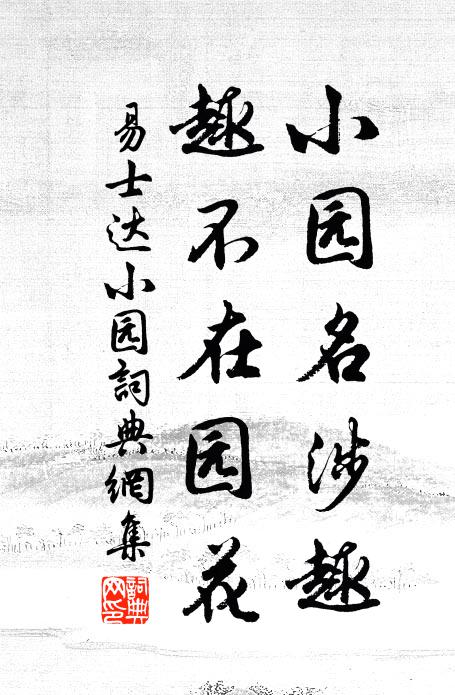 小园名涉趣
趣不在园花
易士达小园詞典網集
詞典网印